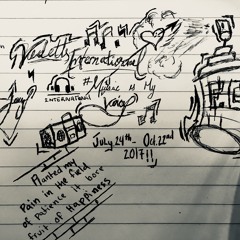 International
# Music is My
INTERNATIONAL
Voice
July 24th - Oct. 22nd
2017!!
Planted my
Pain in the field
of Patience it bore
fruit of Happiness